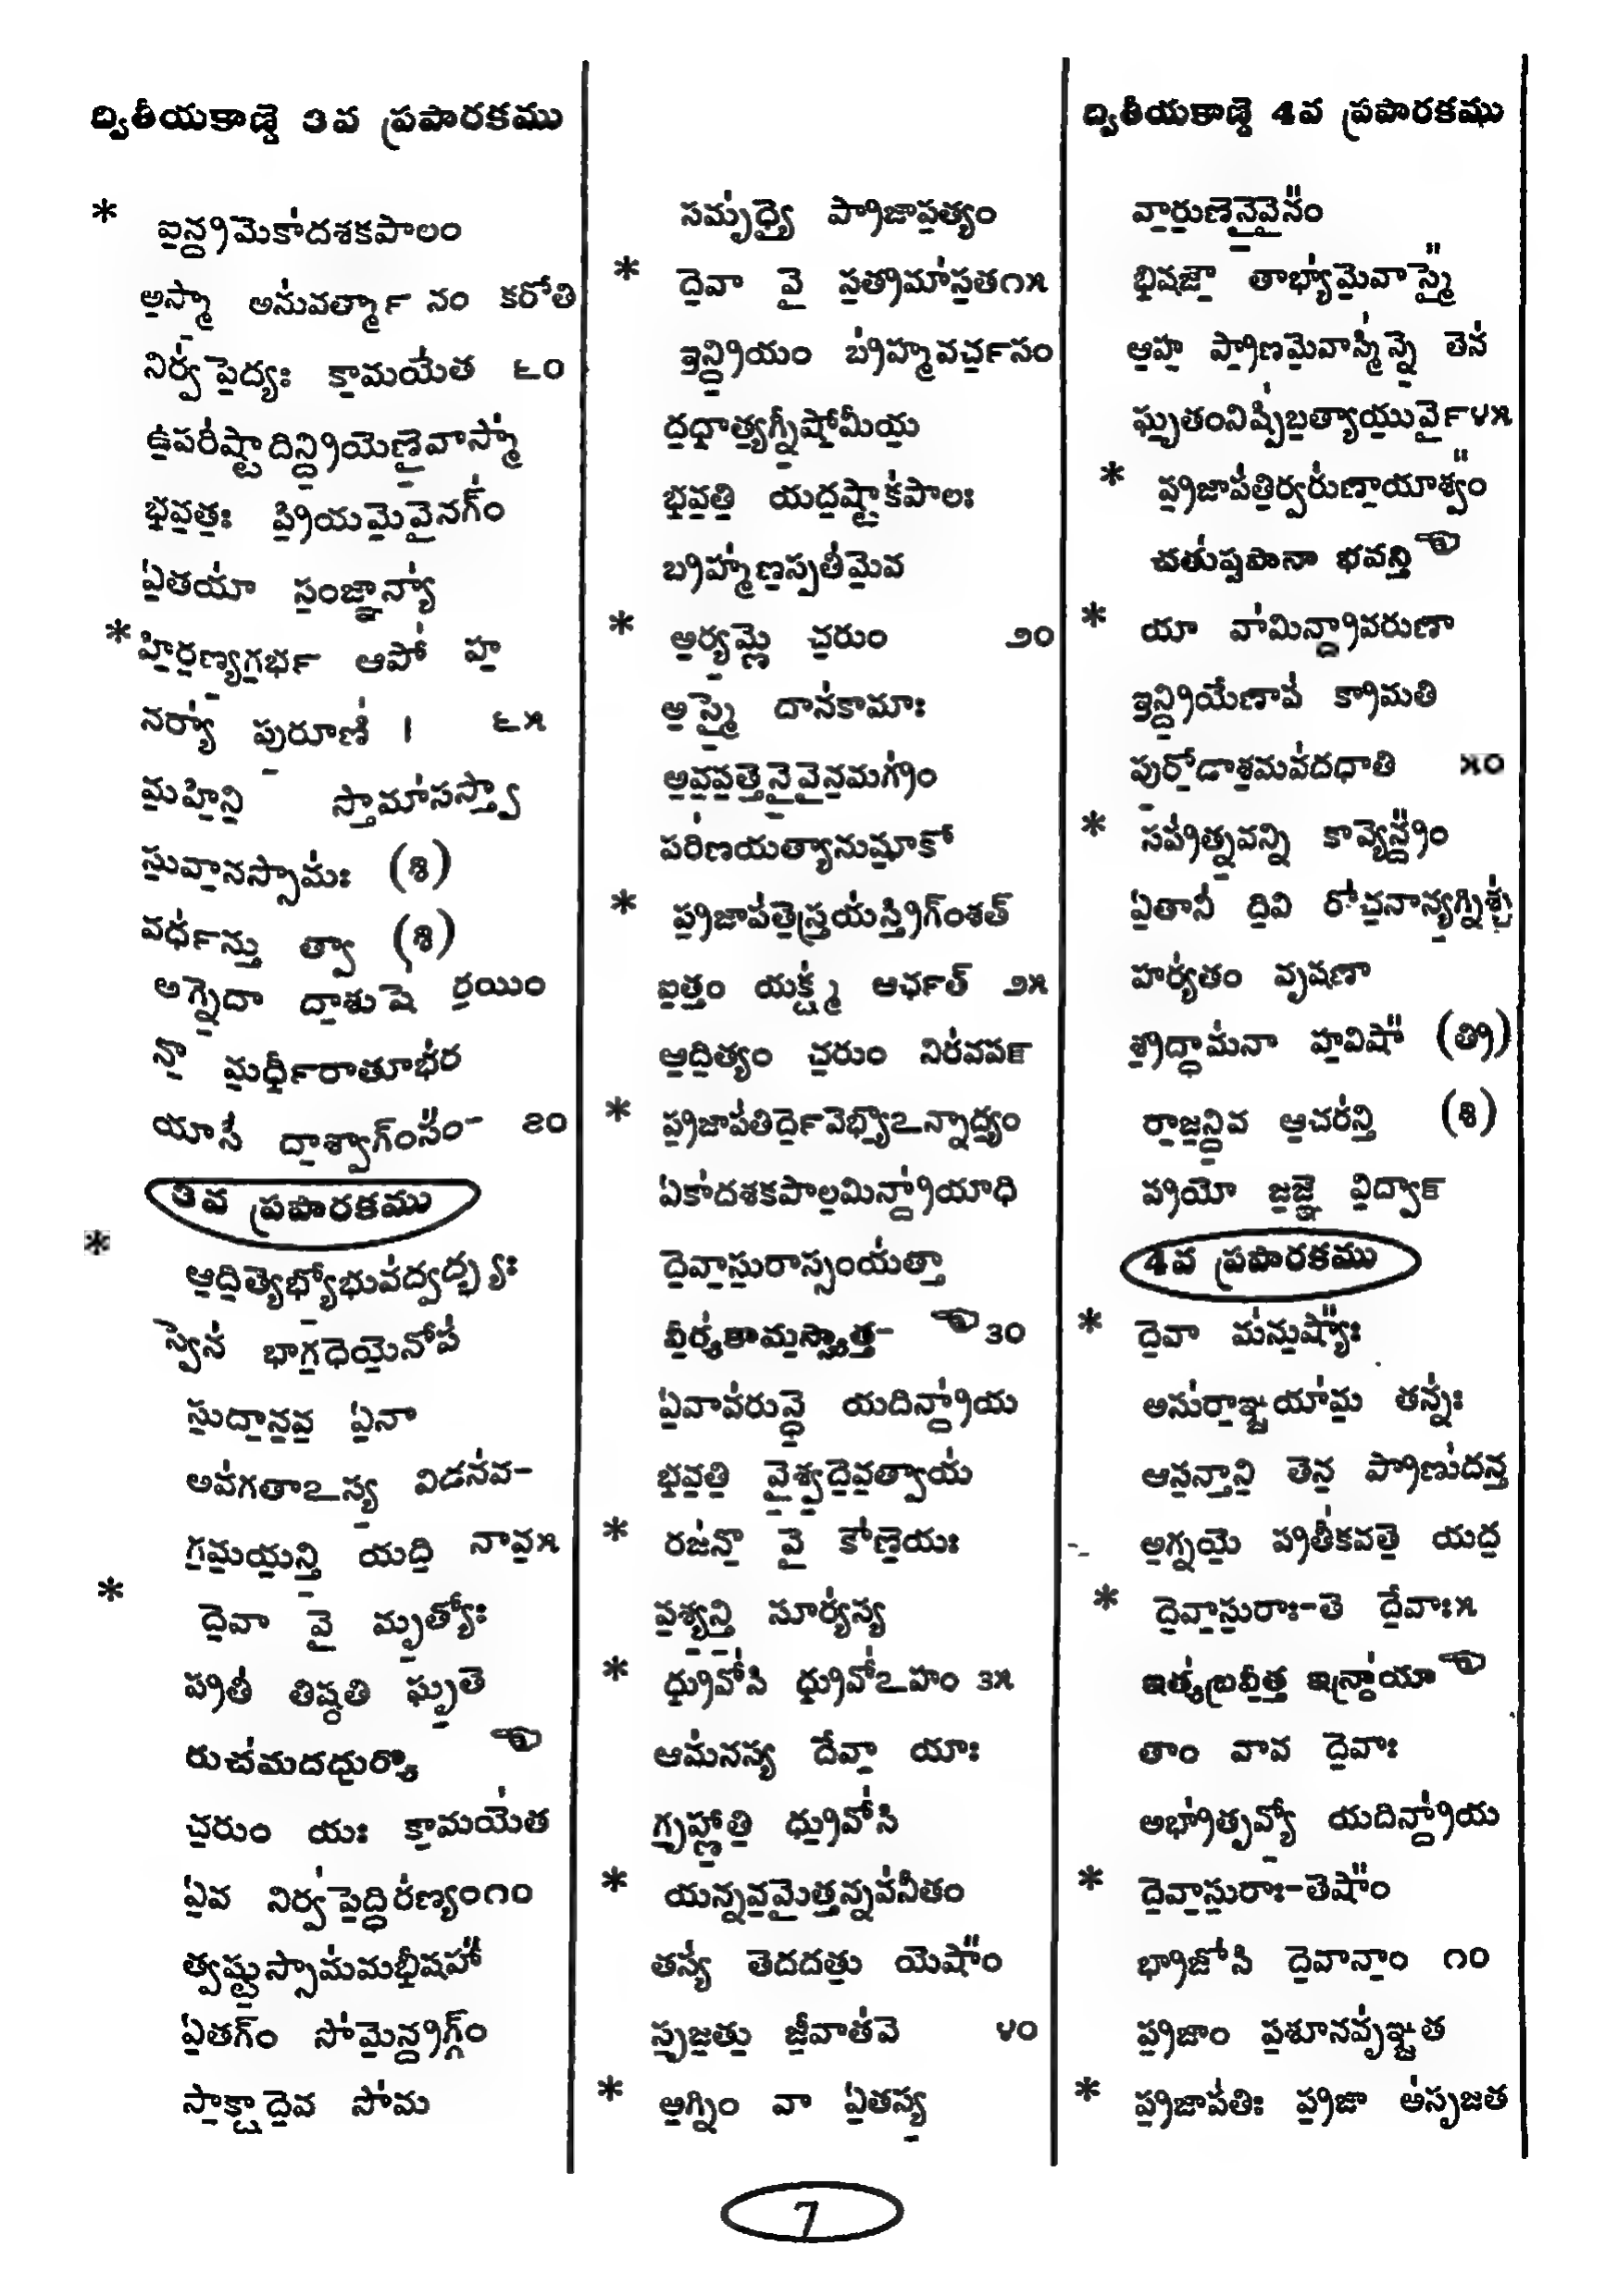 ద్వితీయకాణ్డె 3వ ప్రపారకము
* ఐన్ద్రమెకాదశకపాలం
అస్మా అనువర్త్మానం కరోతి
నిర్వపెద్యః కామయేత ౬౦
ఉపరిష్టాదిన్ద్రియెణైవాస్మా
భవతః ప్రియమెవైనగ్ం
ఏతయా సంజ్ఞాన్యా
* హిరణ్యగర్భ ఆపో హ
నర్యా పురూణి । ౬౫
మహిని స్తోమాసస్త్వా
సువానస్సోమః (శి)
వర్ధన్తు త్వా (శి)
అగ్నెదా దాశుషె రయిం
నొ మర్ధీరాతూభర
యాసి దాశ్వాగ్ంసం- ౭౦
3వ ప్రపారకము
* ఆదిత్యెభ్యోభువద్వద్భ్యః
స్వెన భాగధెయెనోప
సుదానవ ఏనా
అవగతాఽస్య విడనవ-
గమయన్తి యది నావ౫
* దెవా వై మృత్యోః
ప్రతి తిష్ఠతి ఘృతె
రుచమదధుర్యొ
చరుం యః కామయేత
ఏవ నిర్వపెద్ధిరణ్యం౧౦
త్వష్టుస్సోమమభీషహా
ఏతగ్ం సోమెన్ద్రగ్గ్ం
సాక్షాదెవ సోమ
సమృధ్యై ప్రాజాపత్యం
* దెవా వై సత్రమాసత౧౫
ఇన్ద్రియం బ్రహ్మవర్చసం
దధాత్యగ్నీషోమీయ
భవతి యదష్టాకపాలః
బ్రహ్మణస్పతిమెవ
* అర్యమ్ణె చరుం ౨౦
అస్మై దానకామాః
అవవత్తెనైవైనమగ్రం
పరిణయత్యానుషూకో
* ప్రజాపతెస్త్రయస్త్రిగ్ంశత్
ఐతం యక్ష్మ ఆర్ఛత్ ౨౫
ఆదిత్యం చరుం నిరవపన్
* ప్రజాపతిర్దెవెభ్యోఽన్నాద్యం
ఏకాదశకపాలమిన్ద్రాయాధి
దెవాసురాస్సంయత్తా
30
ఏవావరున్ధె యదిన్ద్రాయ
భవతి వైశ్వదెవత్వాయ
* రజనో వై కౌణెయః
పశ్యన్తి సూర్యస్య
* ధ్రువోసి ధ్రువోఽహం 3౫
ఆమనస్య దేవా యాః
గృహ్ణాతి ధ్రువోసి
* యన్నవమైత్తన్నవనీతం
తస్య తెదదతు యెషాం
సృజతు జీవాతవె ౪౦
* అగ్నిం వా ఏతస్య
ద్వితీయకాణ్డె 4వ ప్రపారకము
వారుణెనైవైనం
భిషజౌ తాభ్యామెవాస్మై
ఆహ ప్రాణమెవాస్మిన్నె తెన
ఘృతంనిష్పిబత్యాయుర్వై౪౫
* ప్రజాపతిర్వరుణాయాశ్వం
చతుష్పానా భవన్తి
* యా వామిన్ద్రావరుణా
ఇన్ద్రియేణాప క్రామతి
పురోడాశమవదధాతి ౫౦
* సప్రత్నవన్ని కావ్యేన్ద్రం
ఏతాని దివి రోచనాన్యగ్నిశ్చ
హర్యతం వృషణా
శ్రద్ధామనా హవిషా (త్రి)
రాజన్దివ ఆచరన్తి (శి)
ప్రియో జజ్ఞె విద్వాన్
4వ ప్రపారకము
* దెవా మనుష్యాః
అసురాఞ్జయామ తన్నః
ఆసన్తాని తెన ప్రాణుదన్త
అగ్నయె ప్రతీకవతె యద
* దెవాసురాః-తె దేవాః౫
తాం వావ దెవాః
అభ్రాతృవ్యో యదిన్ద్రాయ
* దెవాసురాః-తెషాం
భ్రాజోసి దెవానాం ౧౦
ప్రజాం పశూనవృఞ్జత
* ప్రజాపతిః ప్రజా అసృజత
7